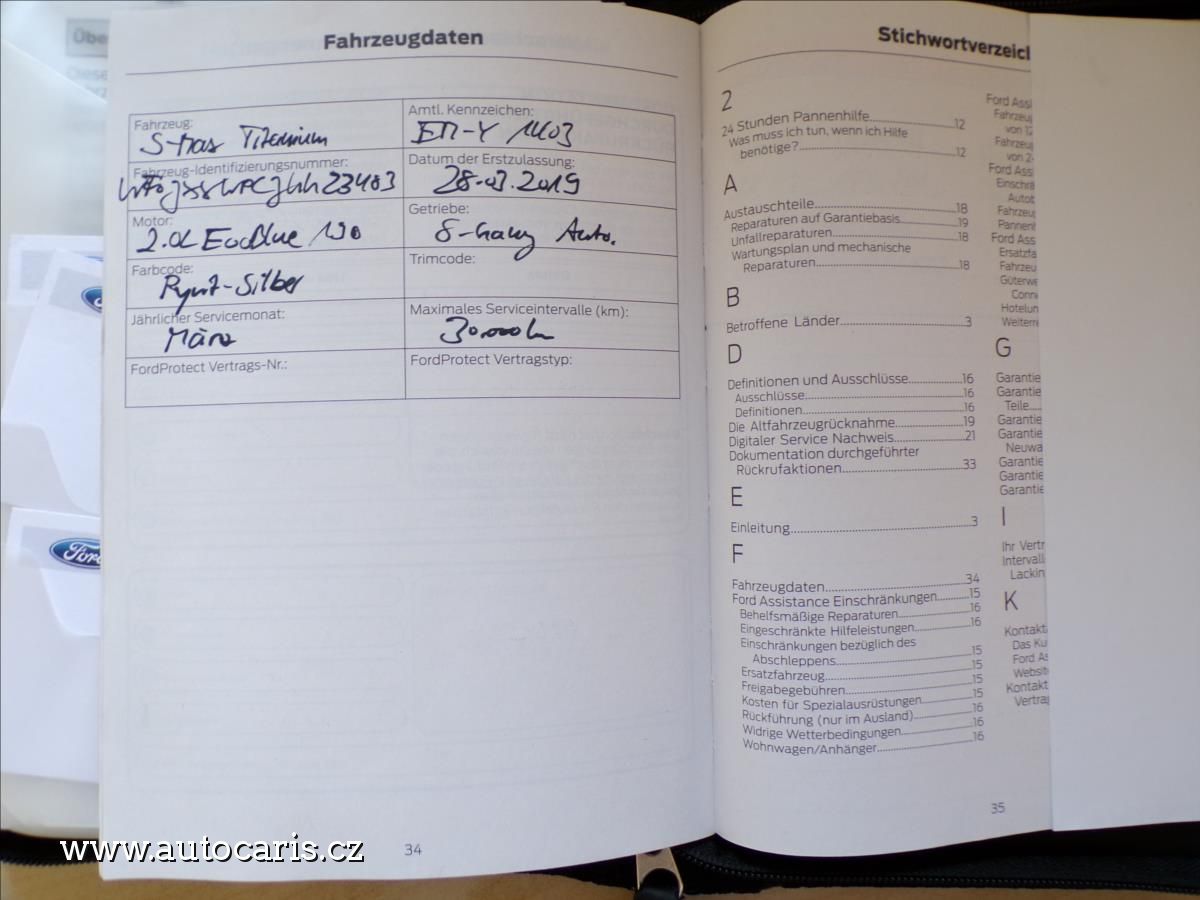 Übe
Diese
Fahrzeugdaten
Fahrzeug:
S-Max Titanium
Amtl. Kennzeichen:
Fahrzeug-Identifizierungsnummer:
Datum der Erstzulassung:
28.03.2019
Motor:
2.0L EcoBlue 190
Getriebe:
8-Gang Auto.
Farbcode:
Trimcode:
Jährlicher Servicemonat:
März
Maximales Serviceintervalle (km):
30.000km
FordProtect Vertrags-Nr.:
FordProtect Vertragstyp:
34
Stichwortverzeicl
2
24 Stunden Pannenhilfe..............12
Was muss ich tun, wenn ich Hilfe
benötige?..............12
A
Austauschteile..............18
Reparaturen auf Garantiebasis..............19
Unfallreparaturen..............18
Wartungsplan und mechanische
Reparaturen..............18
B
Betroffene Länder..............3
D
Definitionen und Ausschlüsse..............16
Ausschlüsse..............16
Definitionen..............16
Die Altfahrzeugrücknahme..............19
Digitaler Service Nachweis..............21
Dokumentation durchgeführter
Rückrufaktionen..............33
E
Einleitung..............3
F
Fahrzeugdaten..............34
Ford Assistance Einschränkungen..............15
Behelfsmäßige Reparaturen..............16
Eingeschränkte Hilfeleistungen..............16
Einschränkungen bezüglich des
Abschleppens..............15
Ersatzfahrzeug..............15
Freigabegebühren..............15
Kosten für Spezialausrüstungen..............15
Rückführung (nur im Ausland)..............16
Widrige Wetterbedingungen..............16
Wohnwagen/Anhänger..............16
Ford Assi
Fahrzeug
von 12
Fahrzeug
von 2
Ford Ass
Einschrä
Autob
Fahrzeu
Pannen
Ford Ass
Ersatzfa
Fahrzeu
Güterwe
Conn
Hotelun
Weiterre
G
Garantie
Garantie
Teile.....
Garantie
Garantie
Neuwa
Garantie
Garantie
Garantie
I
Ihr Vertr
Intervall
Lackin
K
Kontakt
Das Ku
Ford As
Websit
Kontakt
Vertrag
35
Ford
www.autocaris.cz